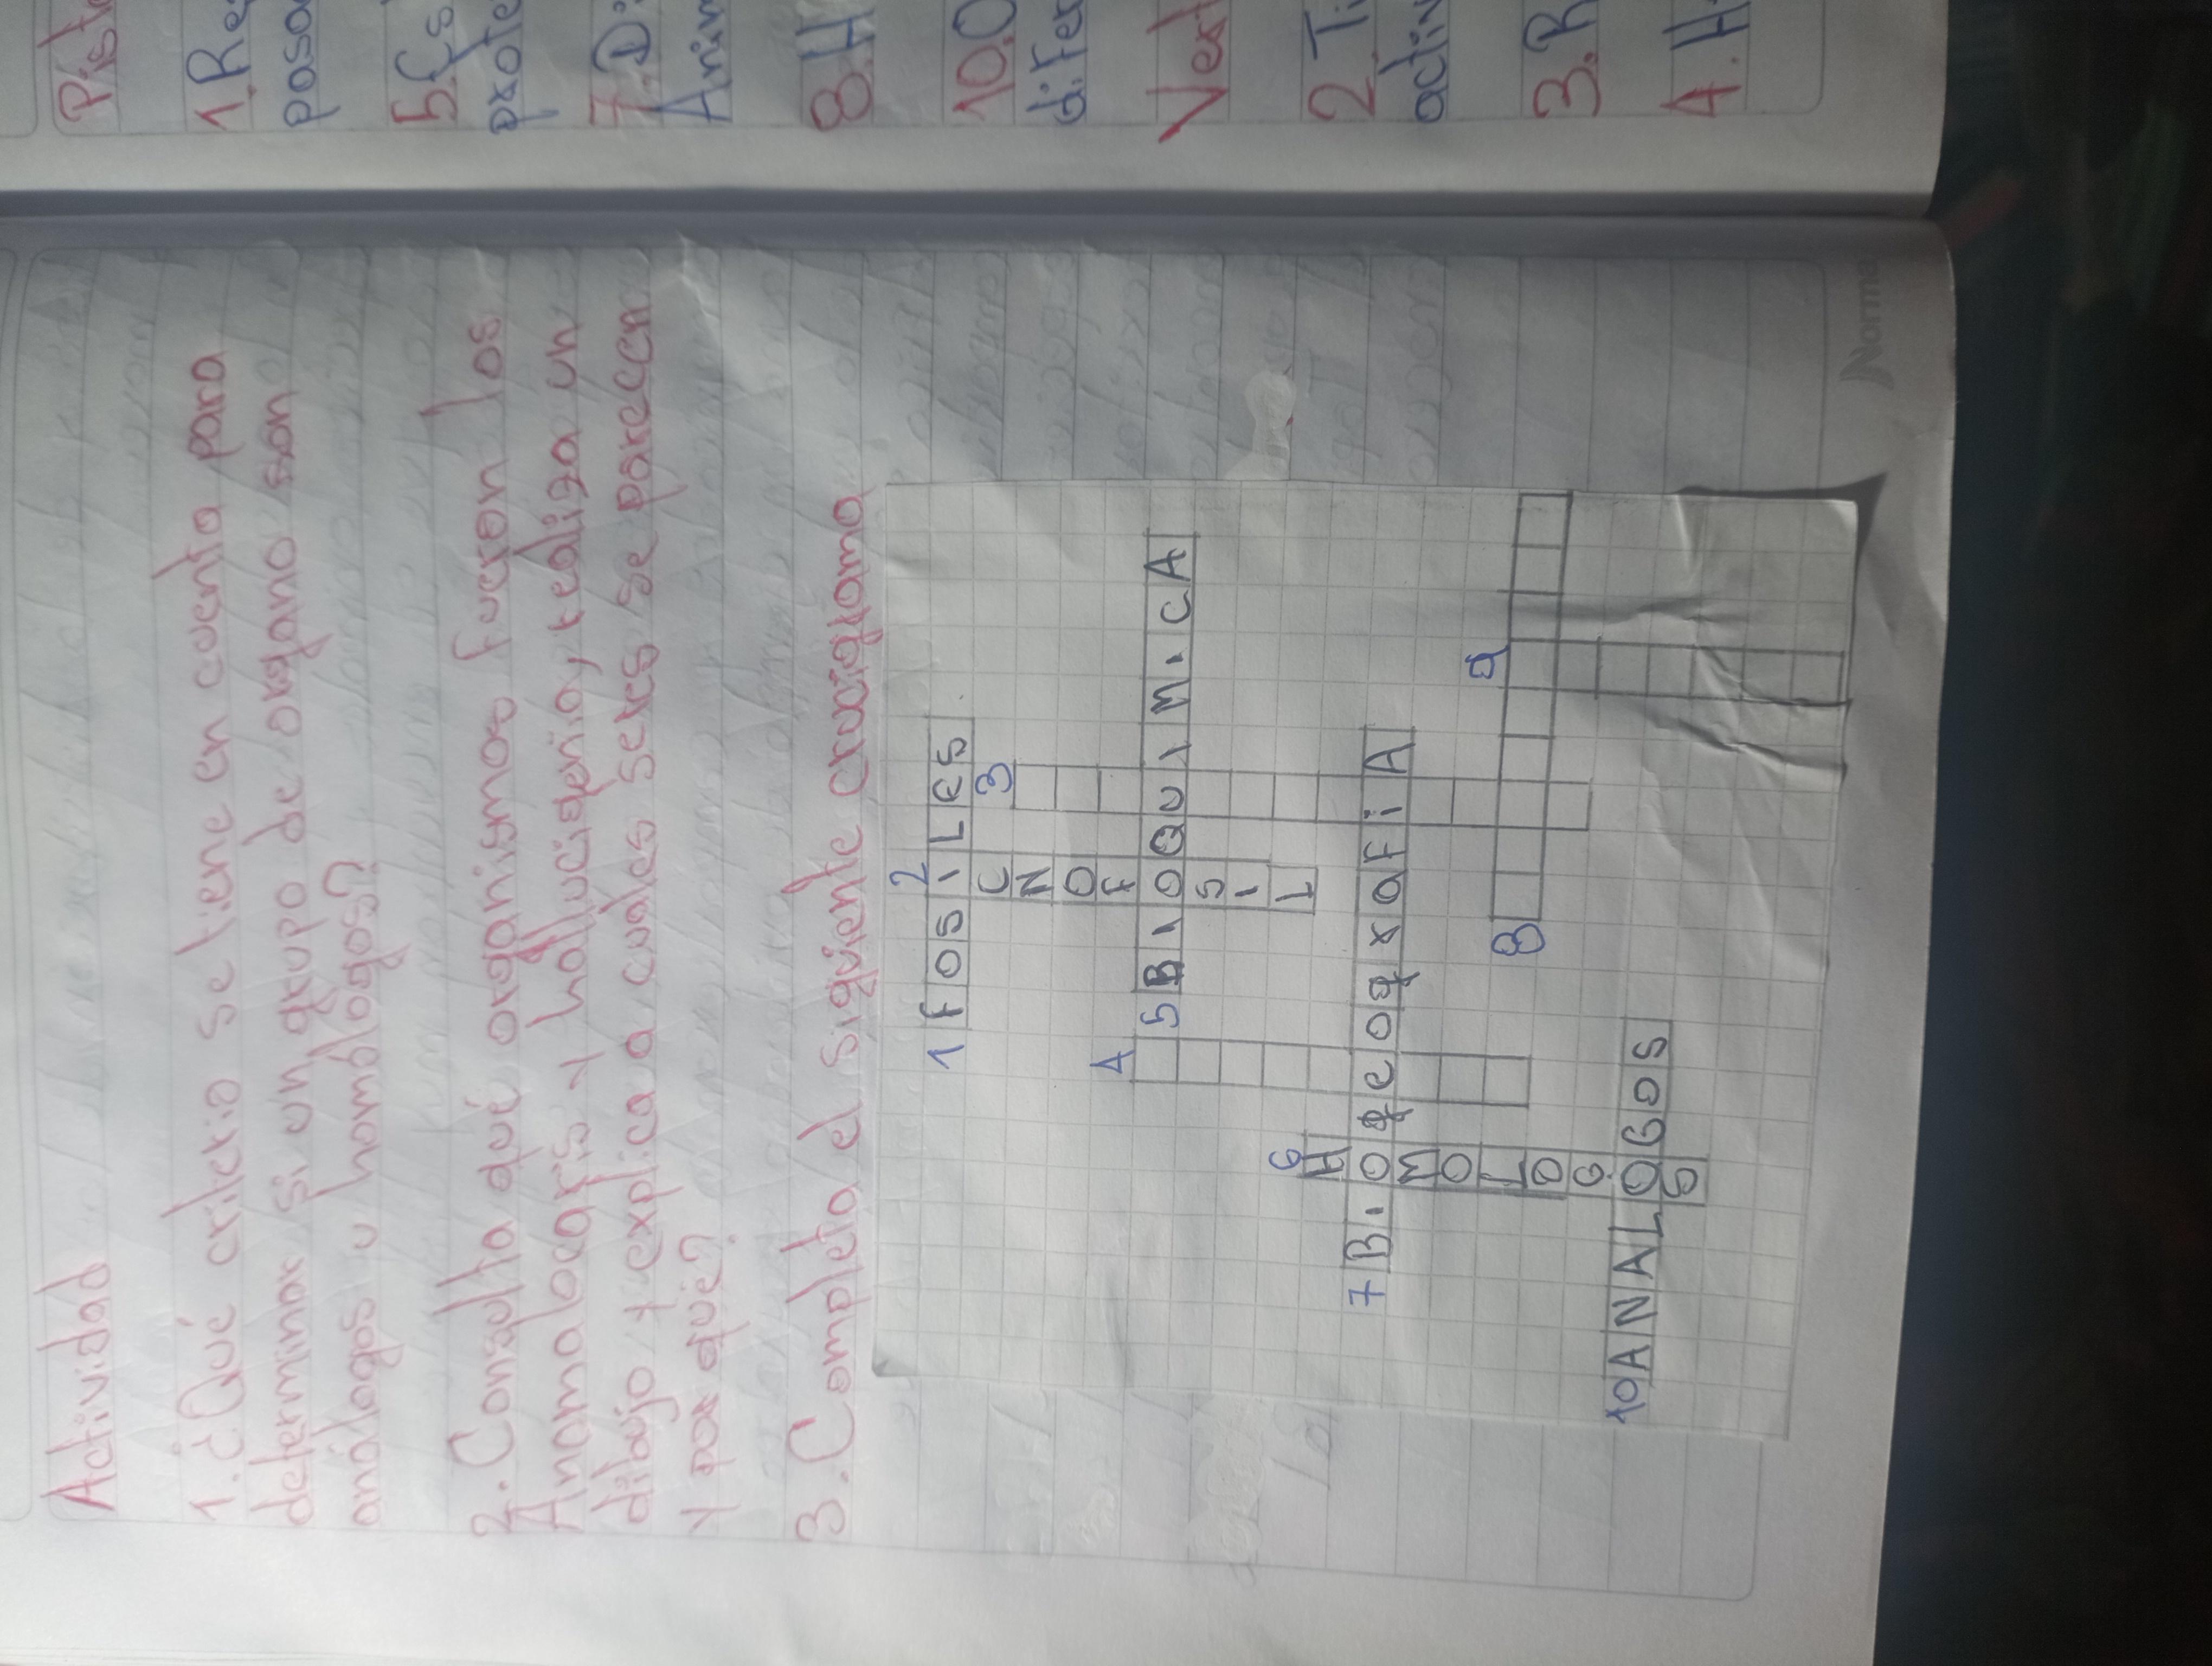 Actividad
1. ¿Qué criterio se tiene en cuenta para
determinar si un grupo de organo son
análogos u homólogos?
2. Consulta qué organismos fueron los
Anomalocaris y hallucigenia, realiza un
dibujo y explica a cuáles seres se parecen
y por qué?
3. Completa el siguiente crucigrama
1 FOSILES
2
ICNOFOSIL
3
4
5 BIOQUIMICA
6
HOMOLOGOS
7 Biogeografia
8
9
10 ANALOGOS
Norma
Pist
1. Re
posa
5. Es
prote
7. Di
Anim
8. H
10. O
difer
Vert
2. Ti
activ
3. R
4. H